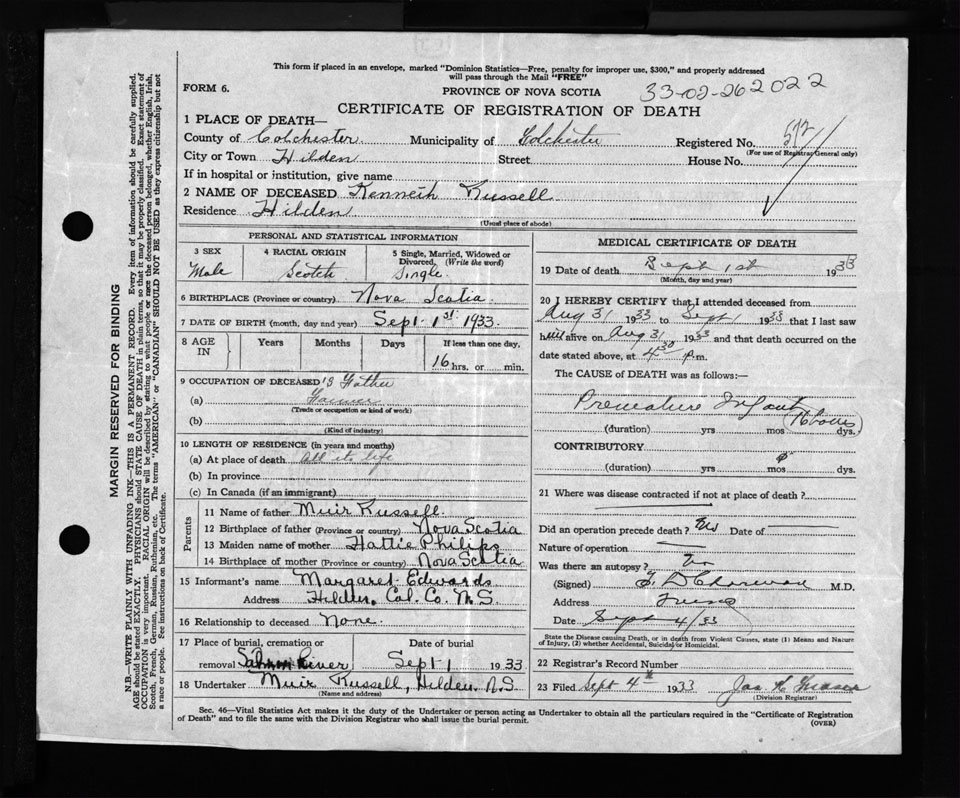 This form if placed in an envelope, marked "Dominion Statistics—Free, penalty for improper use, $300," and properly addressed
will pass through the Mail "FREE"
FORM 6.
PROVINCE OF NOVA SCOTIA
33-02-262022
CERTIFICATE OF REGISTRATION OF DEATH
1 PLACE OF DEATH—
County of Colchester Municipality of Colchester Registered No. 572
(For use of Registrar General only)
City or Town Hilden Street House No.
If in hospital or institution, give name
2 NAME OF DECEASED Kenneth Russell
Residence Hilden
(Usual place of abode)
PERSONAL AND STATISTICAL INFORMATION
3 SEX 4 RACIAL ORIGIN 5 Single, Married, Widowed or
Divorced, (Write the word)
Male Scotch Single
6 BIRTHPLACE (Province or country) Nova Scotia
7 DATE OF BIRTH (month, day and year) Sept. 1st 1933.
8 AGE IN Years Months Days If less than one day,
16 hrs. or min.
9 OCCUPATION OF DECEASED'S Father
(a) Farmer
(Trade or occupation or kind of work)
(b)
(Kind of industry)
10 LENGTH OF RESIDENCE (in years and months)
(a) At place of death All its life
(b) In province
(c) In Canada (if an immigrant)
Parents
11 Name of father Muir Russell
12 Birthplace of father (Province or country) Nova Scotia
13 Maiden name of mother Hattie Philips
14 Birthplace of mother (Province or country) Nova Scotia
15 Informant's name Margaret Edwards
Address Hilden, Col. Co. N.S.
16 Relationship to deceased None.
17 Place of burial, cremation or Date of burial
removal Salmon River Sept 1 1933
18 Undertaker Muir Russell, Hilden, N.S.
(Name and address)
MEDICAL CERTIFICATE OF DEATH
19 Date of death Sept 1st 1933
(Month, day and year)
20 I HEREBY CERTIFY that I attended deceased from
Aug 31 1933 to Sept 1 1933 that I last saw
him alive on Aug 31 1933 and that death occurred on the
date stated above, at 4 30 p.m.
The CAUSE OF DEATH was as follows:—
Premature Infant
(duration) yrs mos 16 hours dys.
CONTRIBUTORY
(duration) yrs mos dys.
21 Where was disease contracted if not at place of death?
Did an operation precede death? No Date of
Nature of operation
Was there an autopsy? No
(Signed) M.D.
Address Truro
Date Sept 4/33
State the Disease causing Death, or in death from Violent Causes, state (1) Means and Nature
of Injury, (2) whether Accidental, Suicidal or Homicidal.
22 Registrar's Record Number
23 Filed Sept 4th 1933 Jas
(Division Registrar)
Sec. 46—Vital Statistics Act makes it the duty of the Undertaker or person acting as Undertaker to obtain all the particulars required in the "Certificate of Registration
of Death" and to file the same with the Division Registrar who shall issue the burial permit.
(OVER)
MARGIN RESERVED FOR BINDING
N.B.—WRITE PLAINLY WITH UNFADING INK—THIS IS A PERMANENT RECORD. Every item of information should be carefully supplied.
AGE should be stated EXACTLY. PHYSICIANS should STATE CAUSE OF DEATH in plain terms, so that it may be properly classified. Exact statement of
OCCUPATION is very important. RACIAL ORIGIN will be described by stating to what people or race the deceased person belonged, whether English, Irish,
Scotch, French, German, Russian, Ruthenian, etc. The terms "AMERICAN" or "CANADIAN" SHOULD NOT BE USED as they express citizenship but not
a race or people. See instructions on back of Certificate.